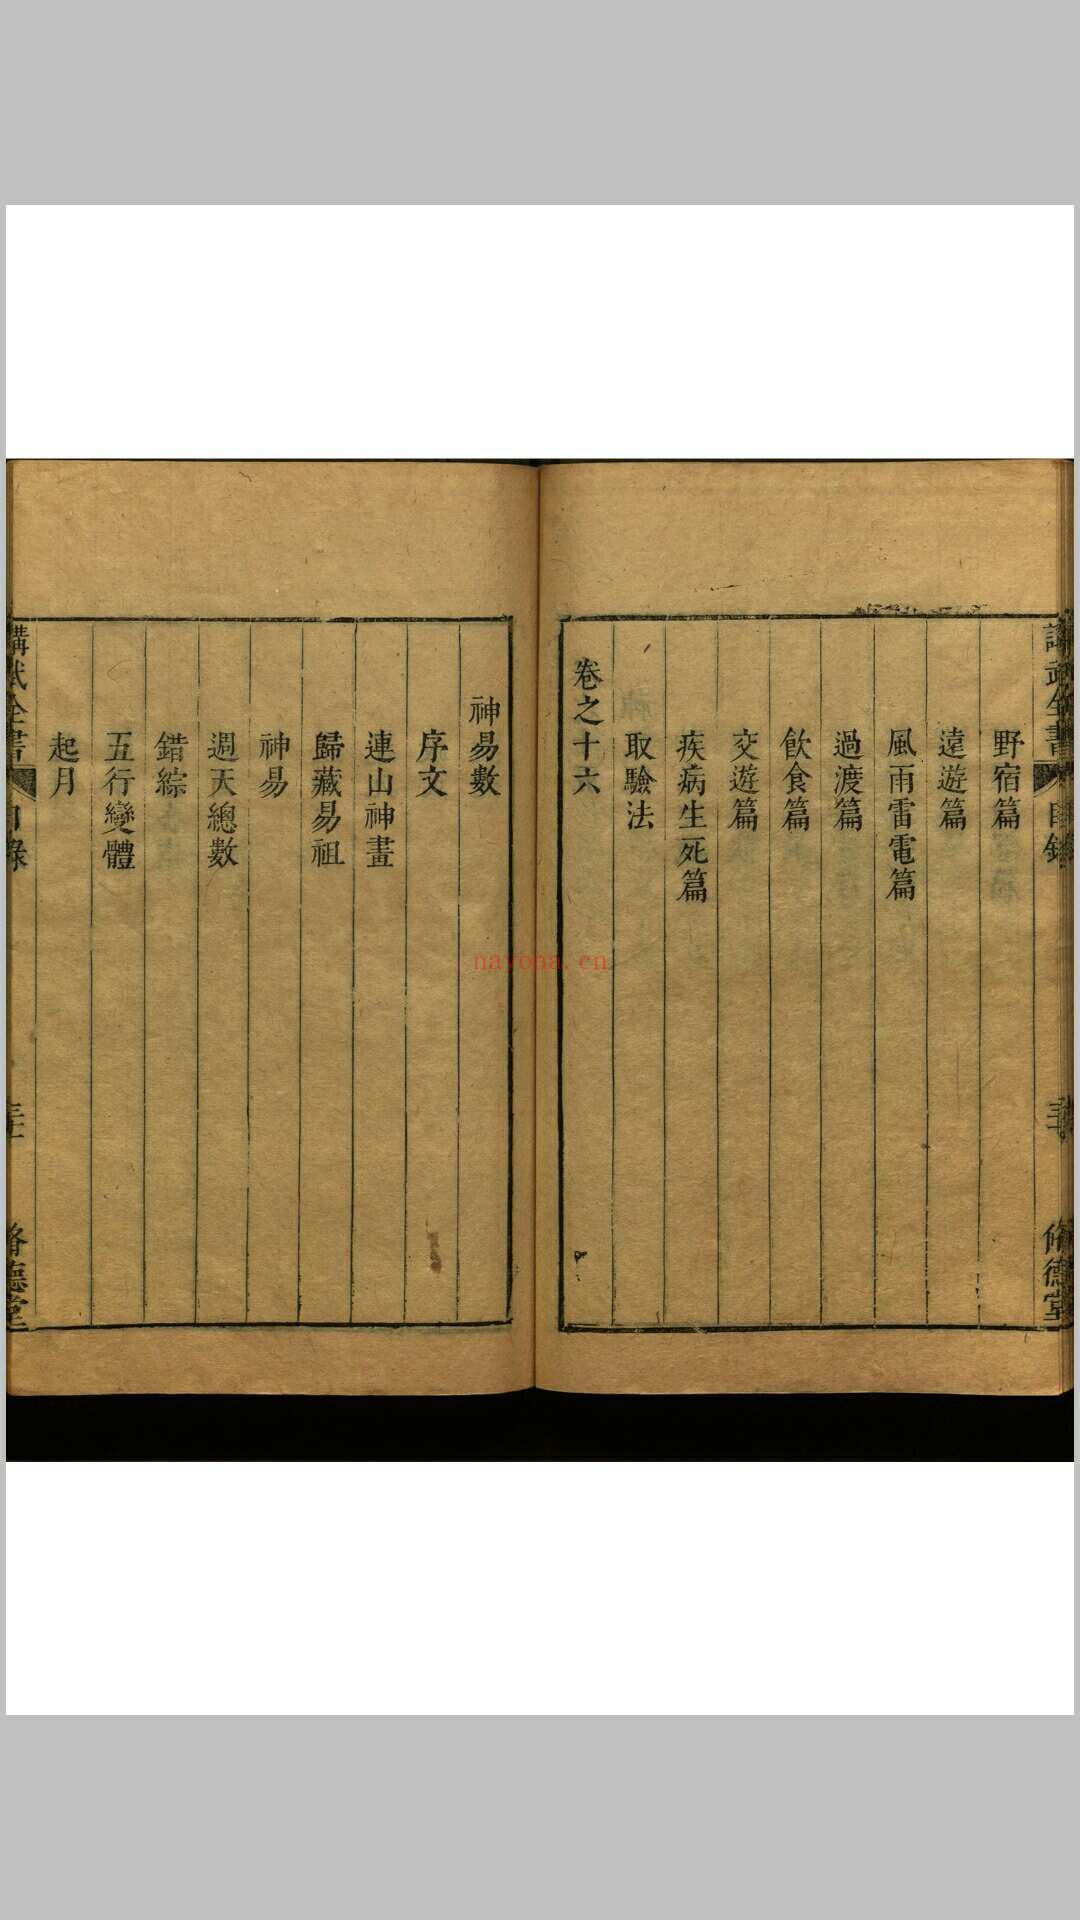 野宿篇
遠遊篇
風雨雷電篇
過渡篇
飲食篇
交遊篇
疾病生死篇
取驗法
卷之十六
神易數
序文
連山神畫
歸藏易祖
神易
週天總數
錯綜
五行變體
起月
講武全書
目錄
德堂
nayona.cn